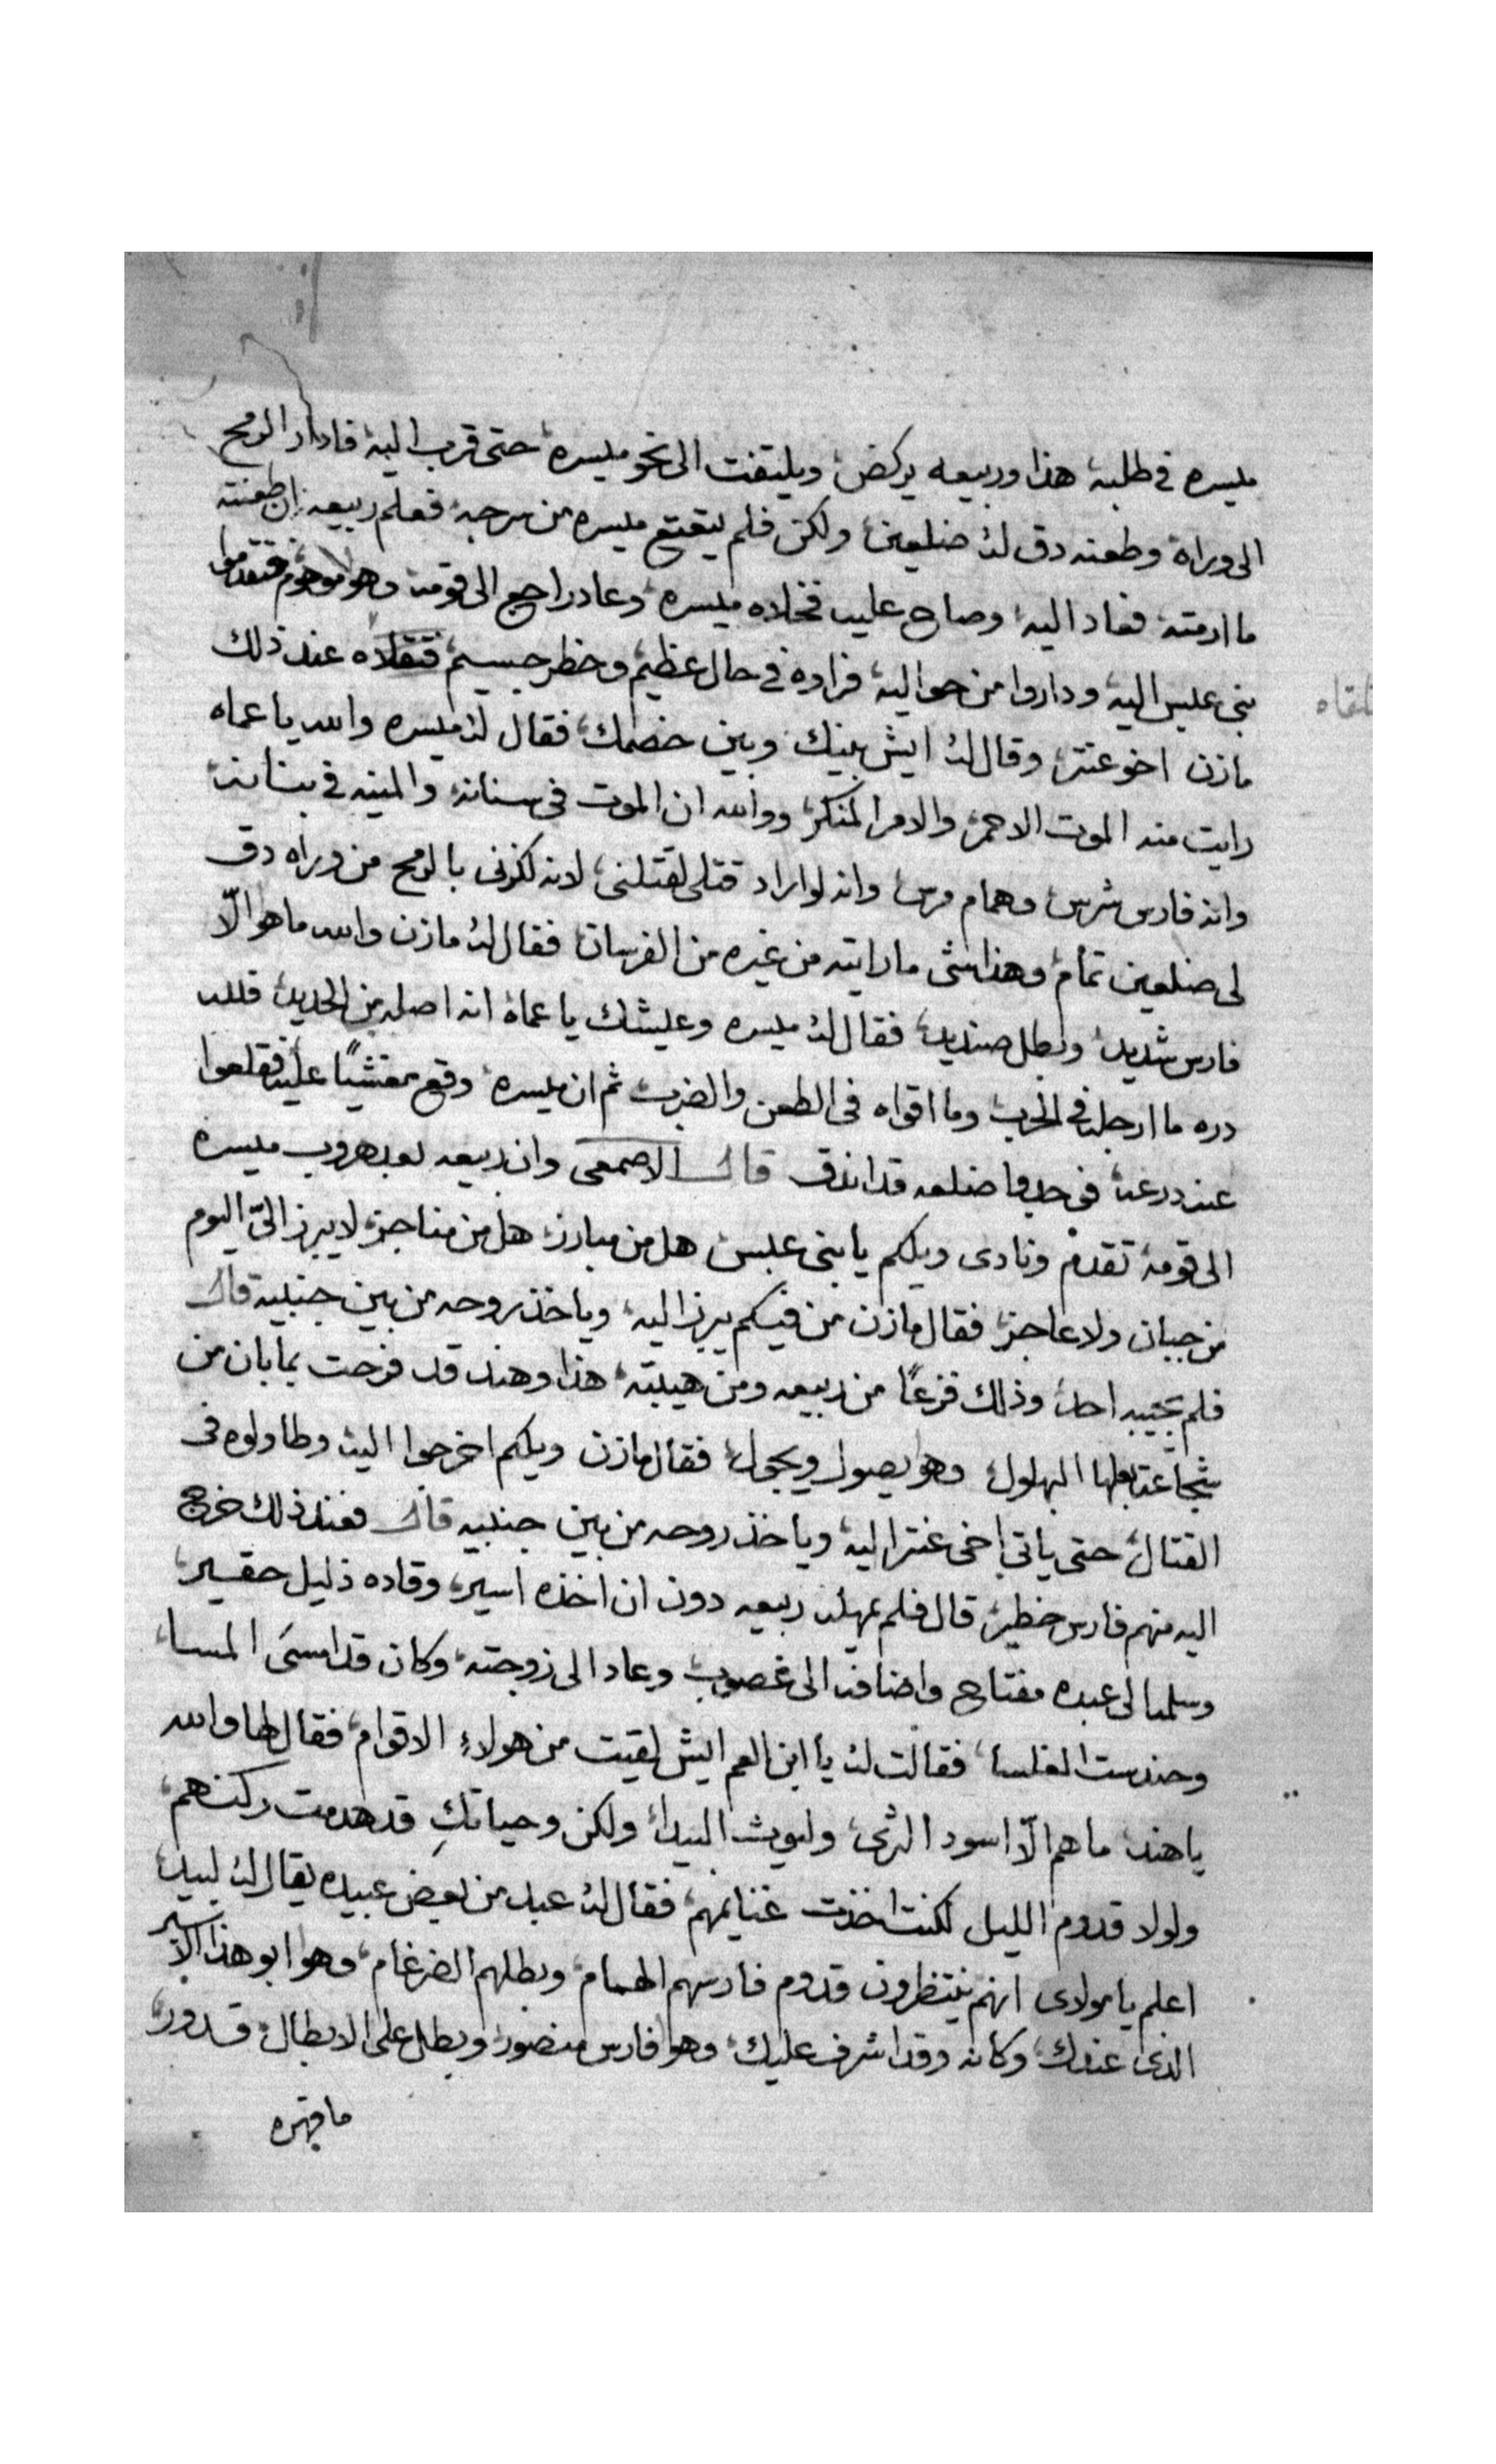 ميسره فى طلبه هذا وربيعه يركض ويليتفت الى نحو ميسره حتى قرب اليه فادار الرمح
الى وراه وطعنه دق له ضلعين ولكن فلم يتعتع ميسره من سرجه فعلم ربيعه ان طعنته
ما ارمته فعاد اليه وصاح عليه فخلاه ميسره وعاد راجع الى قومه وهو موهوم فتقدموا
بنى عبس اليه وداروا من حواليه فراوه فى حال عظيم وخطر جسيم فتقلاه عند ذلك
تلقاه
مازن اخو عنتر وقال له ايش بينك وبين خصمك فقال له ميسره والله يا عماه
رايت منه الموت الاحمر والامر المنكر ووالله ان الموت فى سنانه والمنيه فى بنانه
وانه فارس شرس وهمام مرس وانه لو اراد قتلى لقتلنى لانه لكزنى بالرمح من وراه دق
لى ضلعين تمام وهذا شى ما رايته من غيره من الفرسان فقال له مازن والله ما هو الّا
فارس شديد وبطل صنديد فقال له ميسره وعيشك يا عماه انه اصله من الحديد فلله
دره ما ارجله فى الحرب وما اقواه فى الطعن والضرب ثم ان ميسره وقع مغشيًا عليه فقلعوا
عنه درعه فوجدوا ضلعه قد اندق قال الاصمعى وان ربيعه بعد هروب ميسره
الى قومه تقدم ونادى ويلكم يا بنى عبس هل من مبارز هل من مناجز لا يبرز الىّ اليوم
من جبان ولا عاجز فقال مازن من فيكم يبرز اليه وياخذ روحه من بين جنبيه قال
فلم يجيبه احد وذلك فزعًا من ربيعه ومن هيبته هذا وهند قد فرحت بما بان من
شجاعة بعلها البهلول وهو يصول ويجول فقال مازن ويلكم اخرجوا اليه وطاولوه فى
القتال حتى ياتى اخى عنتر اليه وياخذ روحه من بين جنبيه قال فعند ذلك خرج
اليه منهم فارس خطير قال فلم يمهله ربيعه دون ان اخذه اسير وقاده ذليل حقير
وسلمه الى عبده مفتاح واضافه الى غصوب وعاد الى زوجته وكان قد امسى المسا
وحندست الغلسا فقالت له يا ابن العم ايش لقيت من هولاء الاقوام فقال لها والله
يا هند ما هم الّا اسود الثرى وليوث البيدا ولكن وحياتكِ قد هدمت ركنهم
ولولا قدوم الليل لكنت اخذت غنايمهم فقال له عبد من بعض عبيده يقال له لبيد
اعلم يا مولاى انهم ينتظرون قدوم فارسهم الهمام وبطلهم الضرغام وهو ابو هذا الاسير
الذى عندك وكانه وقد اشرف عليك وهو فارس منصور وبطل على الابطال قدور
ما قهره